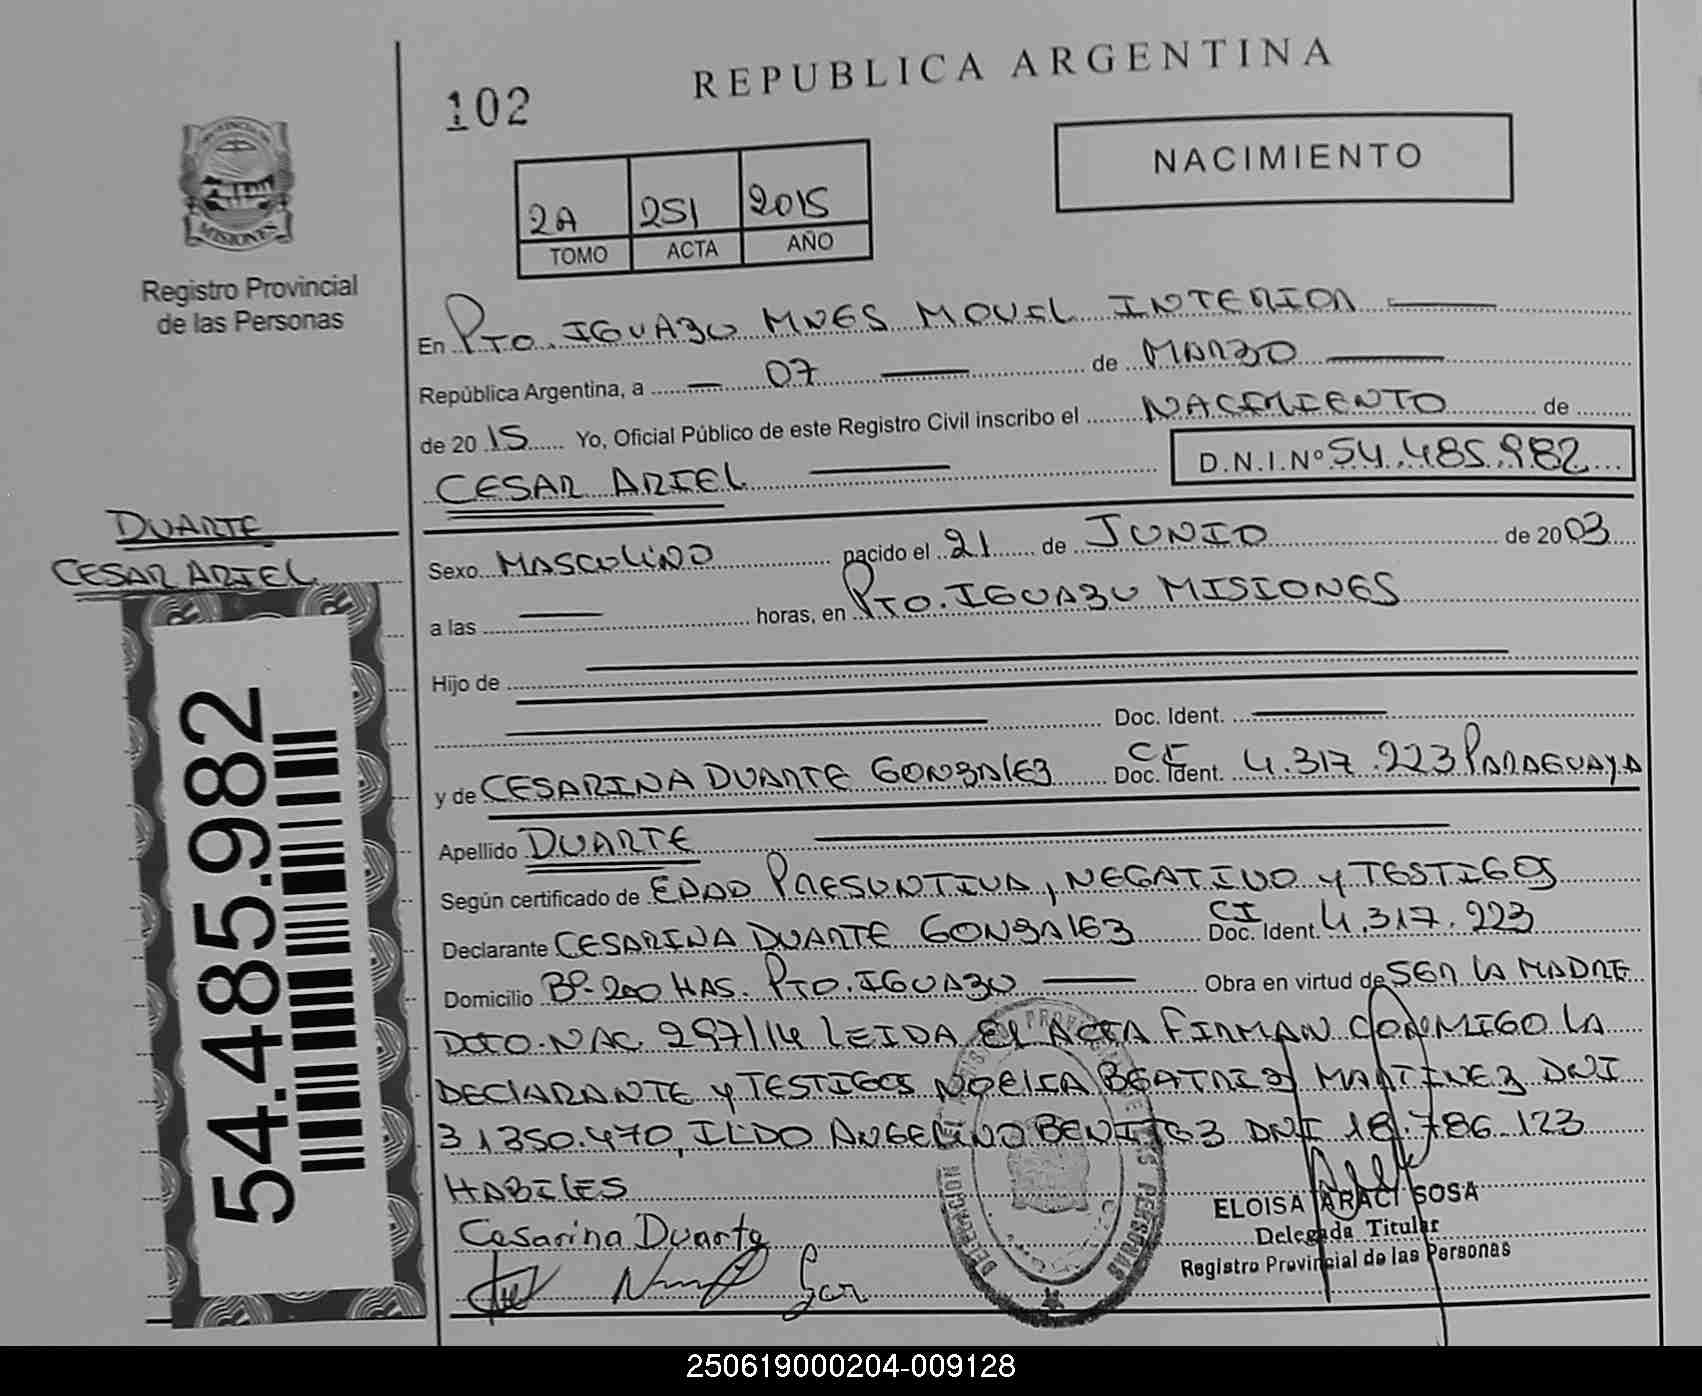 REPUBLICA ARGENTINA
102
NACIMIENTO
2A 251 2015
TOMO ACTA AÑO
MISIONES
Registro Provincial
de las Personas
En PTO. IGUAZU MNES MOVIL INTERIOR
República Argentina, a 07 de MARZO
de 20 15 Yo, Oficial Público de este Registro Civil inscribo el NACIMIENTO de
CESAR ARIEL D.N.I.Nº 54.485.982
DUARTE
CESAR ARIEL
Sexo MASCULINO nacido el 21 de JUNIO de 2003
a las horas, en PTO. IGUAZU MISIONES
Hijo de
Doc. Ident.
y de CESARINA DUARTE GONZALEZ CI Doc. Ident. 4.317.223 PARAGUAYA
Apellido DUARTE
Según certificado de EDAD PRESUNTIVA, NEGATIVO y TESTIGOS
Declarante CESARINA DUARTE GONZALEZ CI Doc. Ident. 4.317.223
Domicilio Bº 200 HAS. PTO. IGUAZU Obra en virtud de SER LA MADRE
DCTO. NAC 297/14 LEIDA EL ACTA FIRMAN CONMIGO LA
DECLARANTE y TESTIGOS NOELIA BEATRIZ MARTINEZ DNI
31350.470, ILDO ANGELINO BENITEZ DNI 18.786.123
HABILES
Cesarina Duarte
ELOISA ARACI SOSA
Delegada Titular
Registro Provincial de las Personas
54.485.982
250619000204-009128